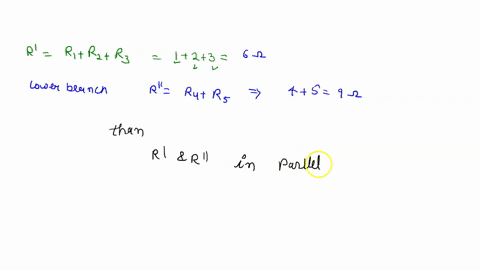 R' = R1 + R2 + R3 = 1 + 2 + 3 = 6 Ω
Lower branch R'' = R4 + R5 ⇒ 4 + 5 = 9 Ω
than
R' & R'' in parallel